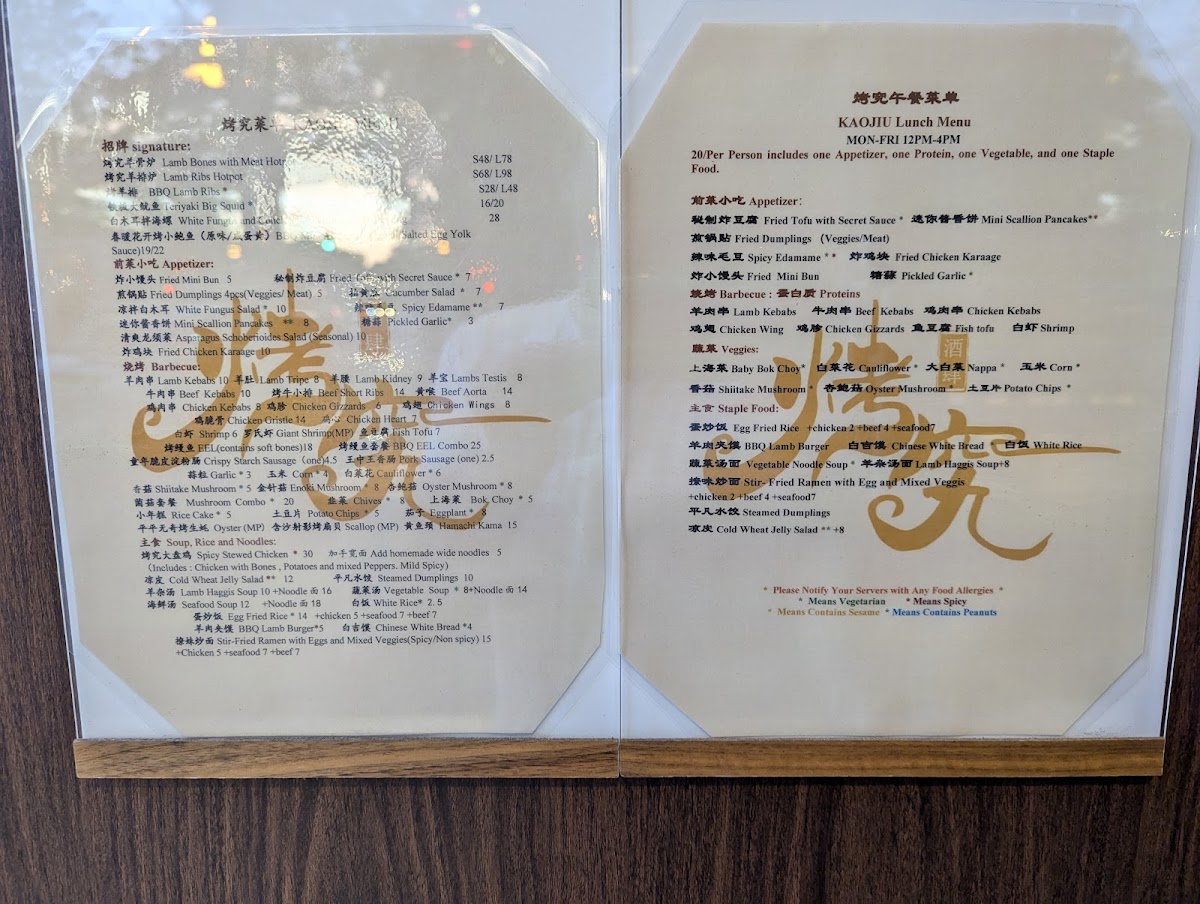 烤究菜
招牌 signature:
烤究羊骨炉 Lamb Bones with Meat S48/ L78
烤究羊排炉 Lamb Ribs Hotpot S68/ L98
烤羊排 BBQ Lamb Ribs * S28/ L48
大鱿鱼 Teriyaki Big Squid * 16/20
白木耳拌海螺 White Fungus and 28
春暖花开烤小鲍鱼（原味/咸蛋黄）Salted Egg Yolk
Sauce)19/22
前菜小吃 Appetizer:
炸小馒头 Fried Mini Bun 5 秘制炸豆腐 Fried Tofu with Secret Sauce * 7
煎锅贴 Fried Dumplings 4pcs(Veggies/ Meat) 5 拍黄瓜 Cucumber Salad * 7
凉拌白木耳 White Fungus Salad * 10 辣味毛豆 Spicy Edamame ** 7
迷你酱香饼 Mini Scallion Pancakes ** 8 糖蒜 Pickled Garlic* 3
清爽龙须菜 Asparagus Schoberioides Salad (Seasonal) 10
炸鸡块 Fried Chicken Karaage 10
烧烤 Barbecue:
羊肉串 Lamb Kebabs 10 羊肚 Lamb Tripe 8 羊腰 Lamb Kidney 9 羊宝 Lambs Testis 8
牛肉串 Beef Kebabs 10 烤牛小排 Beef Short Ribs 14 黄喉 Beef Aorta 14
鸡肉串 Chicken Kebabs 8 鸡胗 Chicken Gizzards 6 鸡翅 Chicken Wings 8
鸡脆骨 Chicken Gristle 14 鸡心 Chicken Heart 7
白虾 Shrimp 6 罗氏虾 Giant Shrimp(MP) 鱼豆腐 Fish Tofu 7
烤鳗鱼 EEL(contains soft bones)18 烤鳗鱼套餐 BBQ EEL Combo 25
童年脆皮淀粉肠 Crispy Starch Sausage (one)4.5 王中王香肠 Pork Sausage (one) 2.5
蒜粒 Garlic * 3 玉米 Corn * 4 白菜花 Cauliflower * 6
香菇 Shiitake Mushroom * 5 金针菇 Enoki Mushroom * 8 杏鲍菇 Oyster Mushroom * 8
菌菇套餐 Mushroom Combo * 20 韭菜 Chives * 8 上海菜 Bok Choy * 5
小年糕 Rice Cake * 5 土豆片 Potato Chips * 5 茄子 Eggplant * 8
平平无奇烤生蚝 Oyster (MP) 含沙射影烤扇贝 Scallop (MP) 黄鱼颈 Hamachi Kama 15
主食 Soup, Rice and Noodles:
烤究大盘鸡 Spicy Stewed Chicken * 30 加手宽面 Add homemade wide noodles 5
(Includes : Chicken with Bones , Potatoes and mixed Peppers. Mild Spicy)
凉皮 Cold Wheat Jelly Salad ** 12 平凡水饺 Steamed Dumplings 10
羊杂汤 Lamb Haggis Soup 10 +Noodle 面 16 蔬菜汤 Vegetable Soup * 8+Noodle 面 14
海鲜汤 Seafood Soup 12 +Noodle 面 18 白饭 White Rice* 2. 5
蛋炒饭 Egg Fried Rice * 14 +chicken 5 +seafood 7 +beef 7
羊肉夹馍 BBQ Lamb Burger*5 白吉馍 Chinese White Bread *4
撩妹炒面 Stir-Fried Ramen with Eggs and Mixed Veggies(Spicy/Non spicy) 15
+Chicken 5 +seafood 7 +beef 7
烤究
酒肆
烤究午餐菜单
KAOJIU Lunch Menu
MON-FRI 12PM-4PM
20/Per Person includes one Appetizer, one Protein, one Vegetable, and one Staple
Food.
前菜小吃 Appetizer:
秘制炸豆腐 Fried Tofu with Secret Sauce * 迷你酱香饼 Mini Scallion Pancakes**
煎锅贴 Fried Dumplings （Veggies/Meat)
辣味毛豆 Spicy Edamame ** 炸鸡块 Fried Chicken Karaage
炸小馒头 Fried Mini Bun 糖蒜 Pickled Garlic *
烧烤 Barbecue : 蛋白质 Proteins
羊肉串 Lamb Kebabs 牛肉串 Beef Kebabs 鸡肉串 Chicken Kebabs
鸡翅 Chicken Wing 鸡胗 Chicken Gizzards 鱼豆腐 Fish tofu 白虾 Shrimp
蔬菜 Veggies:
上海菜 Baby Bok Choy* 白菜花 Cauliflower * 大白菜 Nappa * 玉米 Corn *
香菇 Shiitake Mushroom * 杏鲍菇 Oyster Mushroom * 土豆片 Potato Chips *
主食 Staple Food:
蛋炒饭 Egg Fried Rice +chicken 2 +beef 4 +seafood7
羊肉夹馍 BBQ Lamb Burger 白吉馍 Chinese White Bread * 白饭 White Rice
蔬菜汤面 Vegetable Noodle Soup * 羊杂汤面 Lamb Haggis Soup+8
撩妹炒面 Stir- Fried Ramen with Egg and Mixed Veggis
+chicken 2 +beef 4 +seafood7
平凡水饺 Steamed Dumplings
凉皮 Cold Wheat Jelly Salad ** +8
烤究
酒肆
* Please Notify Your Servers with Any Food Allergies *
* Means Vegetarian * Means Spicy
* Means Contains Sesame * Means Contains Peanuts